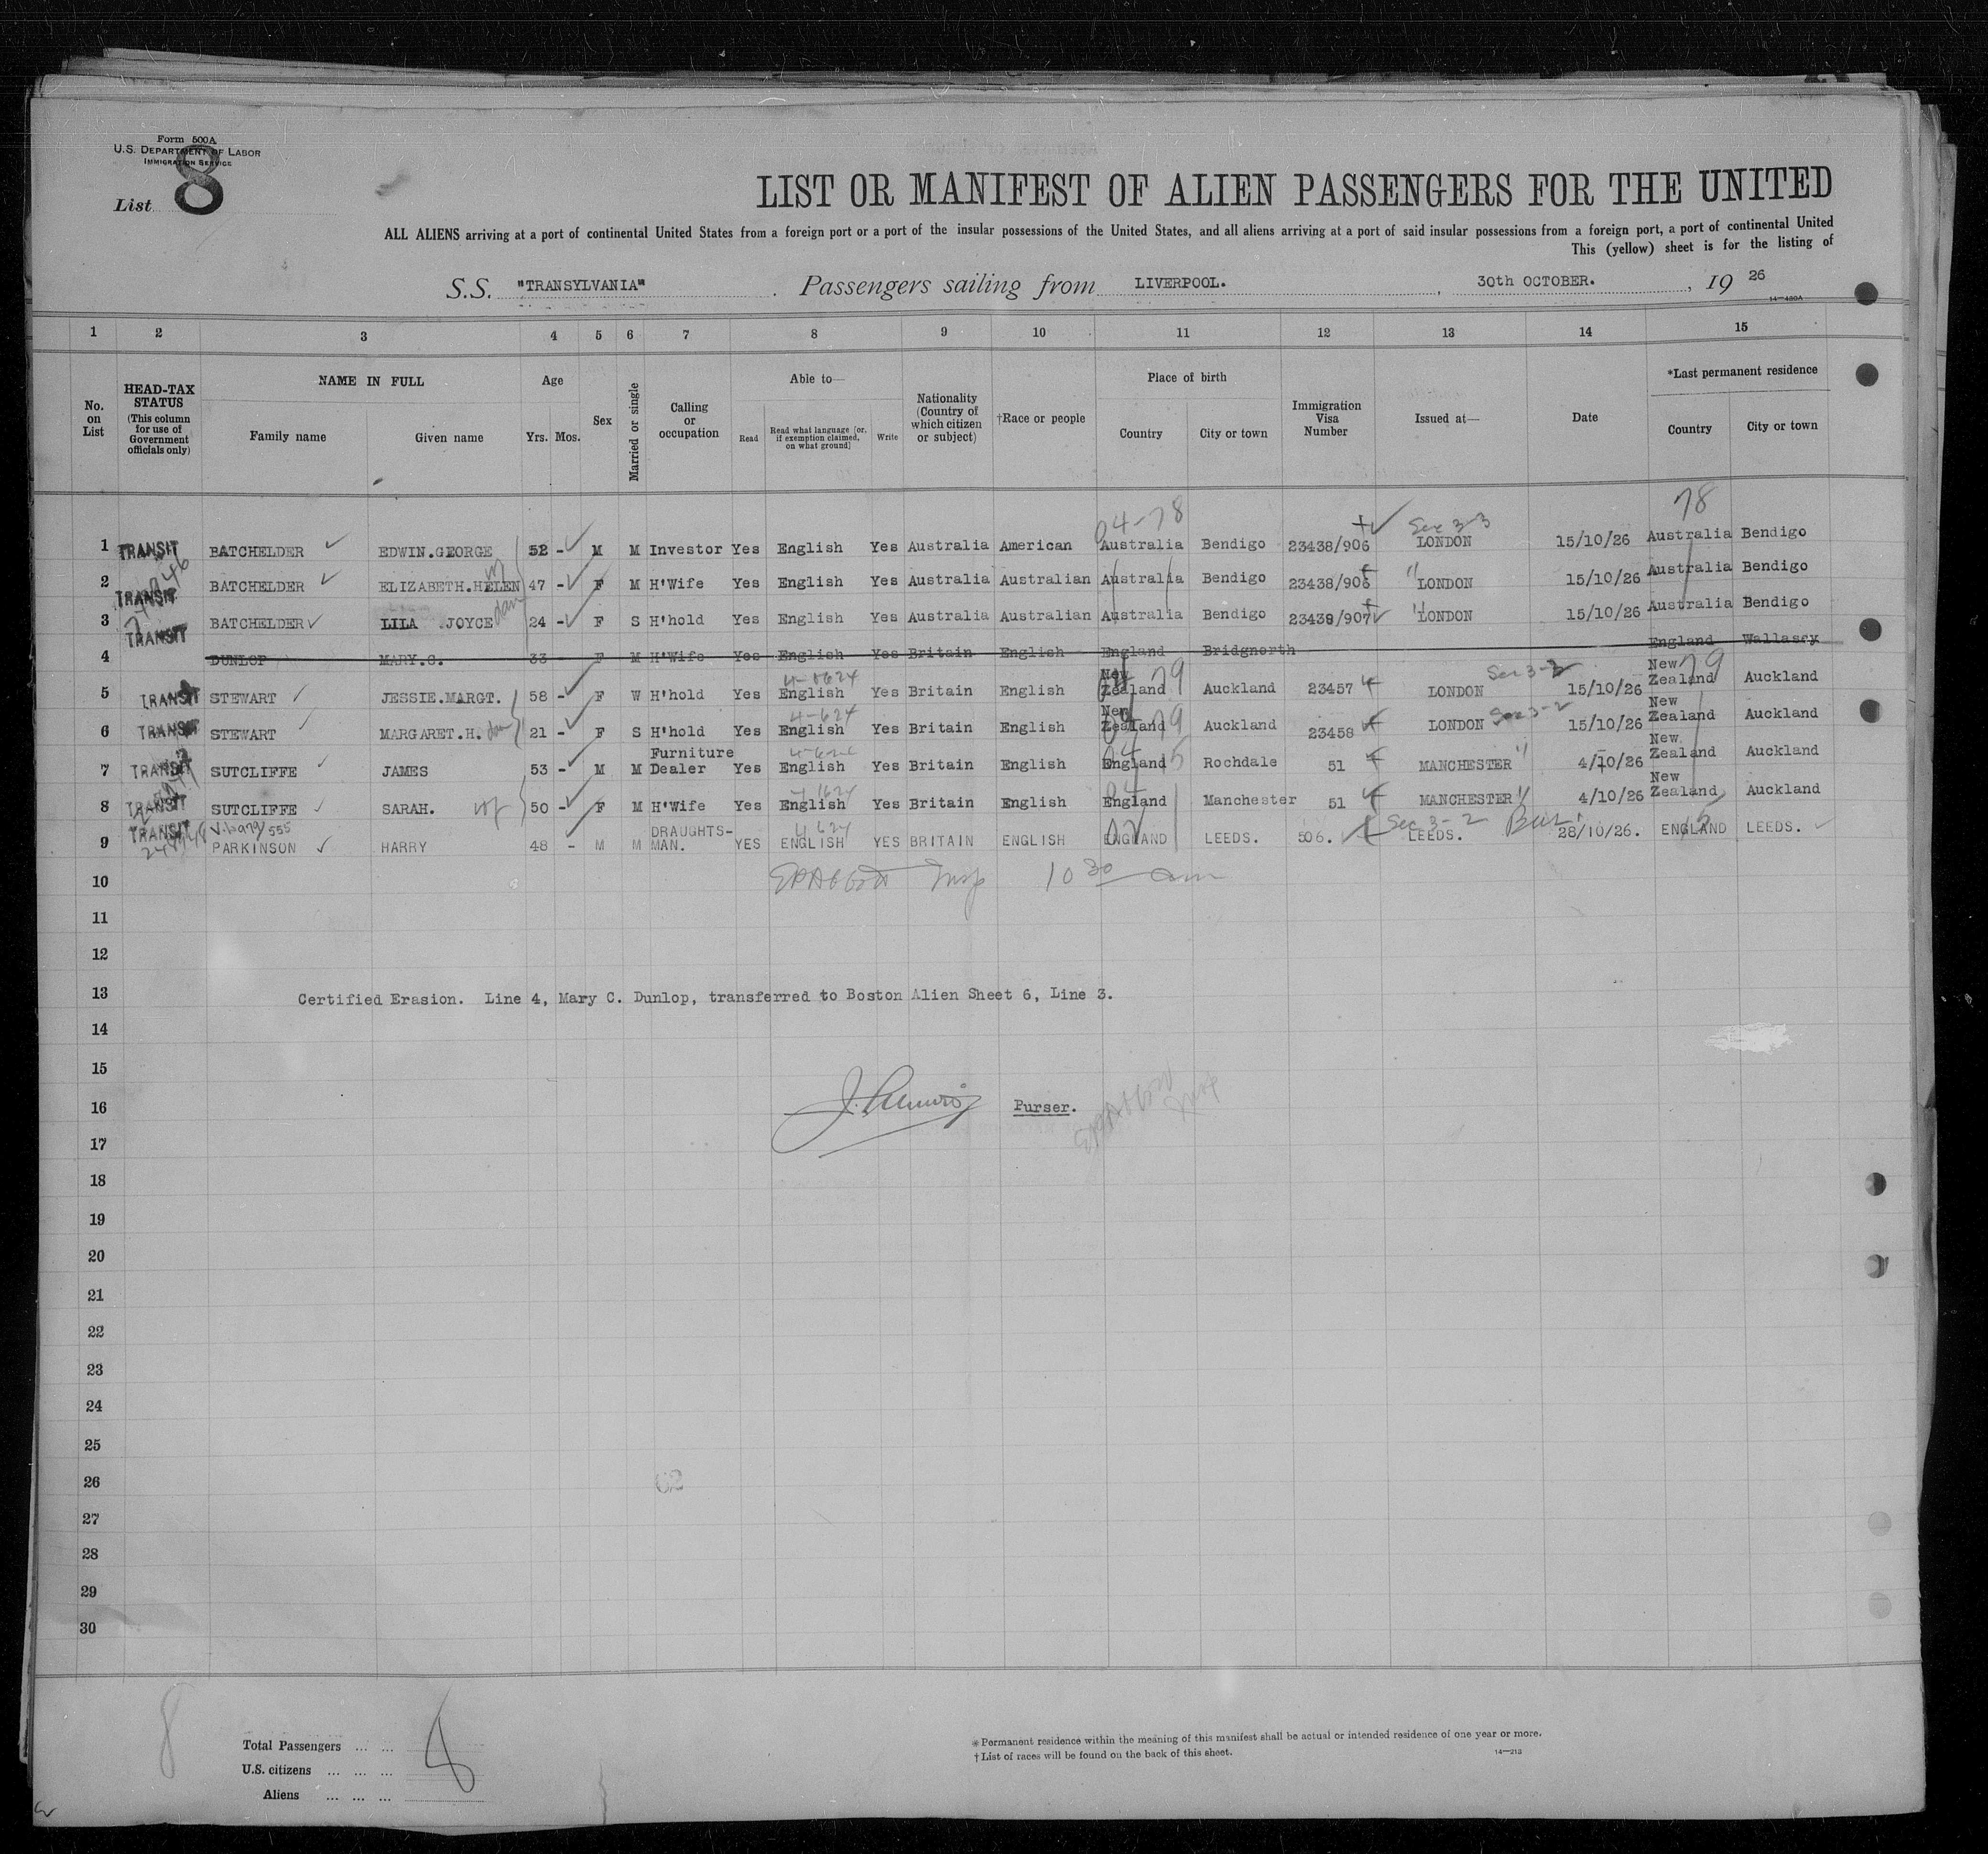 Form 500A
U.S. DEPARTMENT OF LABOR
IMMIGRATION SERVICE
List 8
LIST OR MANIFEST OF ALIEN PASSENGERS FOR THE UNITED
ALL ALIENS arriving at a port of continental United States from a foreign port or a port of the insular possessions of the United States, and all aliens arriving at a port of said insular possessions from a foreign port, a port of continental United
This (yellow) sheet is for the listing of
S.S. "TRANSYLVANIA" . Passengers sailing from LIVERPOOL. , 30th OCTOBER. , 19 26
14—480A
1 2 3 4 5 6 7 8 9 10 11 12 13 14 15
No. on List
HEAD-TAX STATUS (This column for use of Government officials only)
NAME IN FULL
Family name Given name
Age
Yrs. Mos.
Sex
Married or single
Calling or occupation
Able to—
Read
Read what language [or, if exemption claimed, on what ground]
Write
Nationality (Country of which citizen or subject)
†Race or people
Place of birth
Country City or town
Immigration Visa Number
Issued at—
Date
*Last permanent residence
Country City or town
04-78 78
Sec 3-3
1 TRANSIT BATCHELDER EDWIN.GEORGE 52 - M M Investor Yes English Yes Australia American Australia Bendigo 23438/906 LONDON 15/10/26 Australia Bendigo
2 TRANSIT BATCHELDER ELIZABETH.HELEN 47 - F M H'Wife Yes English Yes Australia Australian Australia Bendigo 23438/906 " LONDON 15/10/26 Australia Bendigo
3 TRANSIT BATCHELDER LILA JOYCE dau 24 - F S H'hold Yes English Yes Australia Australian Australia Bendigo 23439/907 " LONDON 15/10/26 Australia Bendigo
4 DUNLOP MARY.C. 33 F M H'Wife Yes English Yes Britain English England Bridgnorth England Wallascy
5 TRANSIT STEWART JESSIE.MARGT. 58 - F W H'hold Yes English Yes Britain English New Zealand 79 Auckland 23457 LONDON Sec 3-2 15/10/26 New Zealand 79 Auckland
4-624
6 TRANSIT STEWART MARGARET.H. dau 21 - F S H'hold Yes English Yes Britain English New Zealand 79 Auckland 23458 LONDON Sec 3-2 15/10/26 New Zealand Auckland
7 TRANSIT SUTCLIFFE JAMES 53 - M M Furniture Dealer Yes English Yes Britain English England Rochdale 51 MANCHESTER " 4/10/26 New Zealand Auckland
8 TRANSIT SUTCLIFFE SARAH. wf 50 - F M H'Wife Yes English Yes Britain English England Manchester 51 MANCHESTER " 4/10/26 New Zealand Auckland
4 624
9 TRANSIT PARKINSON HARRY 48 - M M DRAUGHTS-MAN. YES ENGLISH YES BRITAIN ENGLISH ENGLAND LEEDS. 506. Sec 3-2 LEEDS. 28/10/26. ENGLAND LEEDS.
10 Insp 10 30 am
11
12
13 Certified Erasion. Line 4, Mary C. Dunlop, transferred to Boston Alien Sheet 6, Line 3.
14
15
16 Purser.
17
18
19
20
21
22
23
24
25
26
27
28
29
30
8
Total Passengers ... ... 8
U.S. citizens ... ... ...
Aliens ... ... ...
*Permanent residence within the meaning of this manifest shall be actual or intended residence of one year or more.
†List of races will be found on the back of this sheet.
14—213